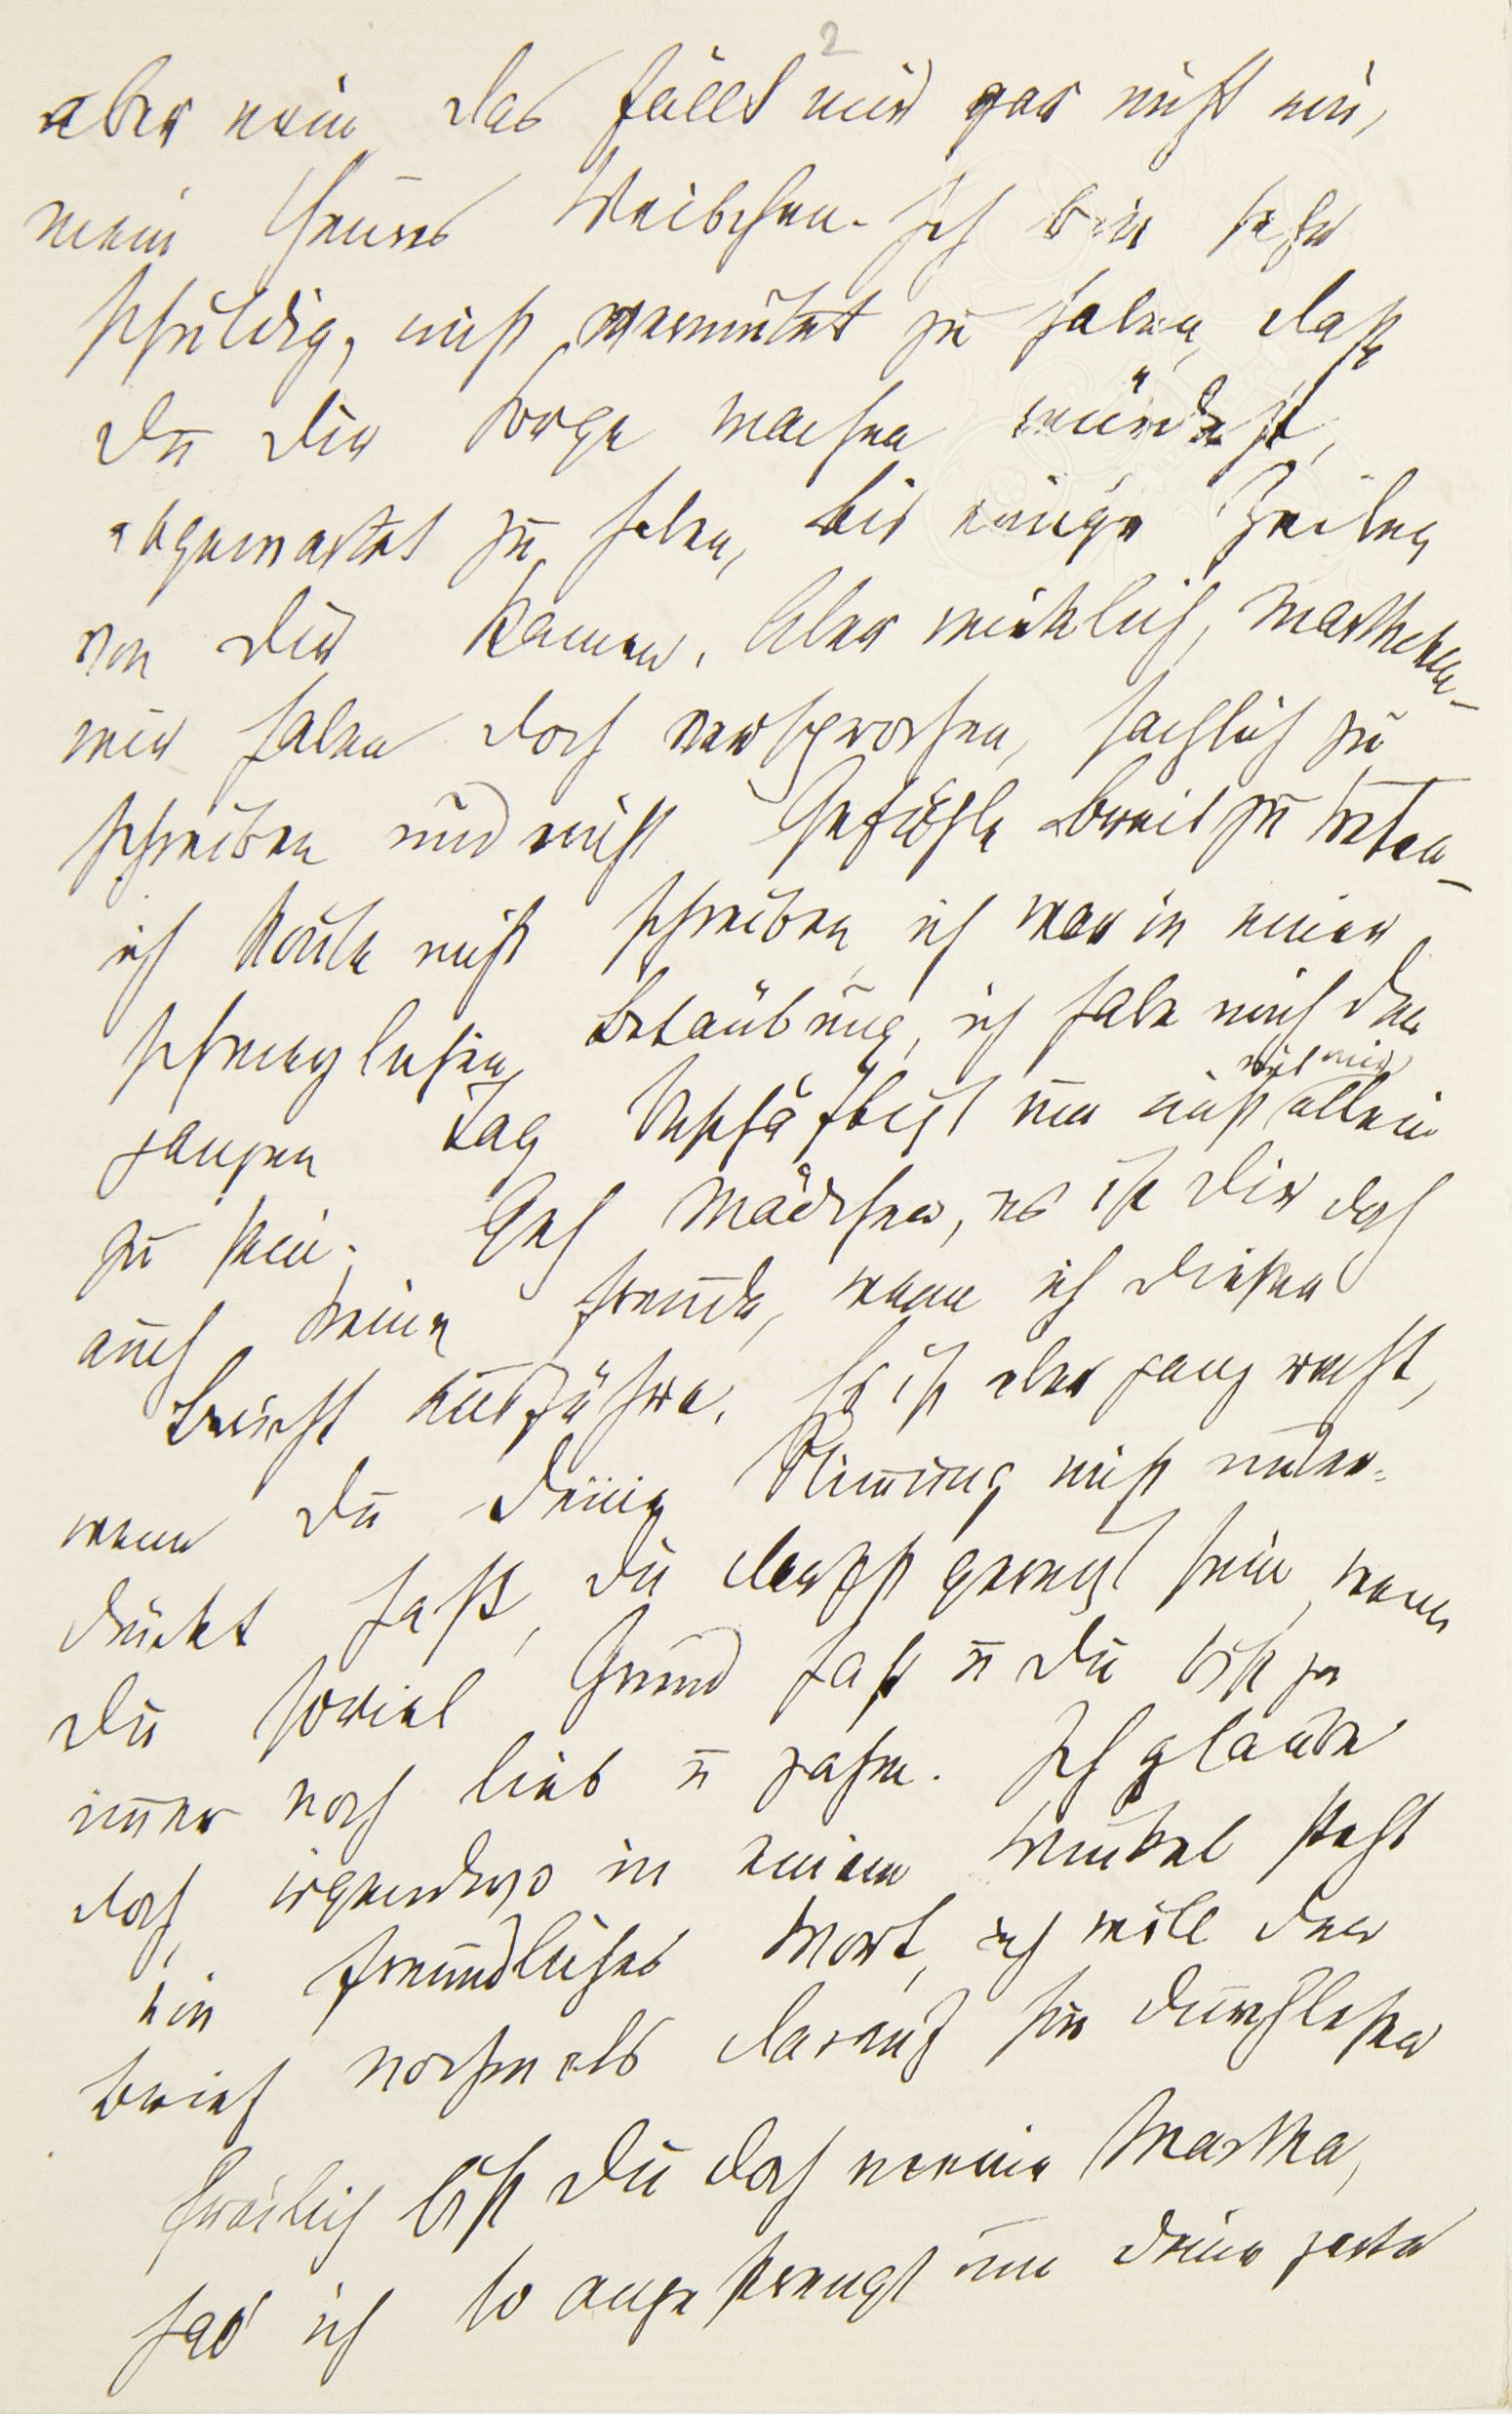 2
aber nein das fällt mir gar nicht ein,
mein theures Weibchen. Ich bin sehr
schuldig, nicht vermutet zu haben, daß
Du Dir Sorge machen würdest,
abgewartet zu haben, bis einige Zeilen
von Dir kamen. Aber wirklich, Marthchen –
wir haben doch versprochen, sachlich zu
schreiben und nicht Gefühle breit zu treten –
ich konnte nicht schreiben, ich war in einer
schmerzlichen Betäubung, ich habe mich den
mit mir
ganzen Tag beschäftigt um nicht allein
zu sein. Geh Mädchen, es ist Dir doch
auch keine Freude, wenn ich diesen
Bericht ausführe. Es ist aber ganz recht,
wenn Du Deine Stimmung nicht unter-
drückt hast, Du darfst gereizt sein, wenn
Du soviel Grund hast u Du bist ja
immer noch lieb u zahm. Ich glaube
doch, irgendwo in einem Winkel steht
ein freundliches Wort, ich will den
Brief nochmals daraufhin durchlesen
Freilich bist Du doch meine Martha,
hab' ich so angestrengt um Deine zarte